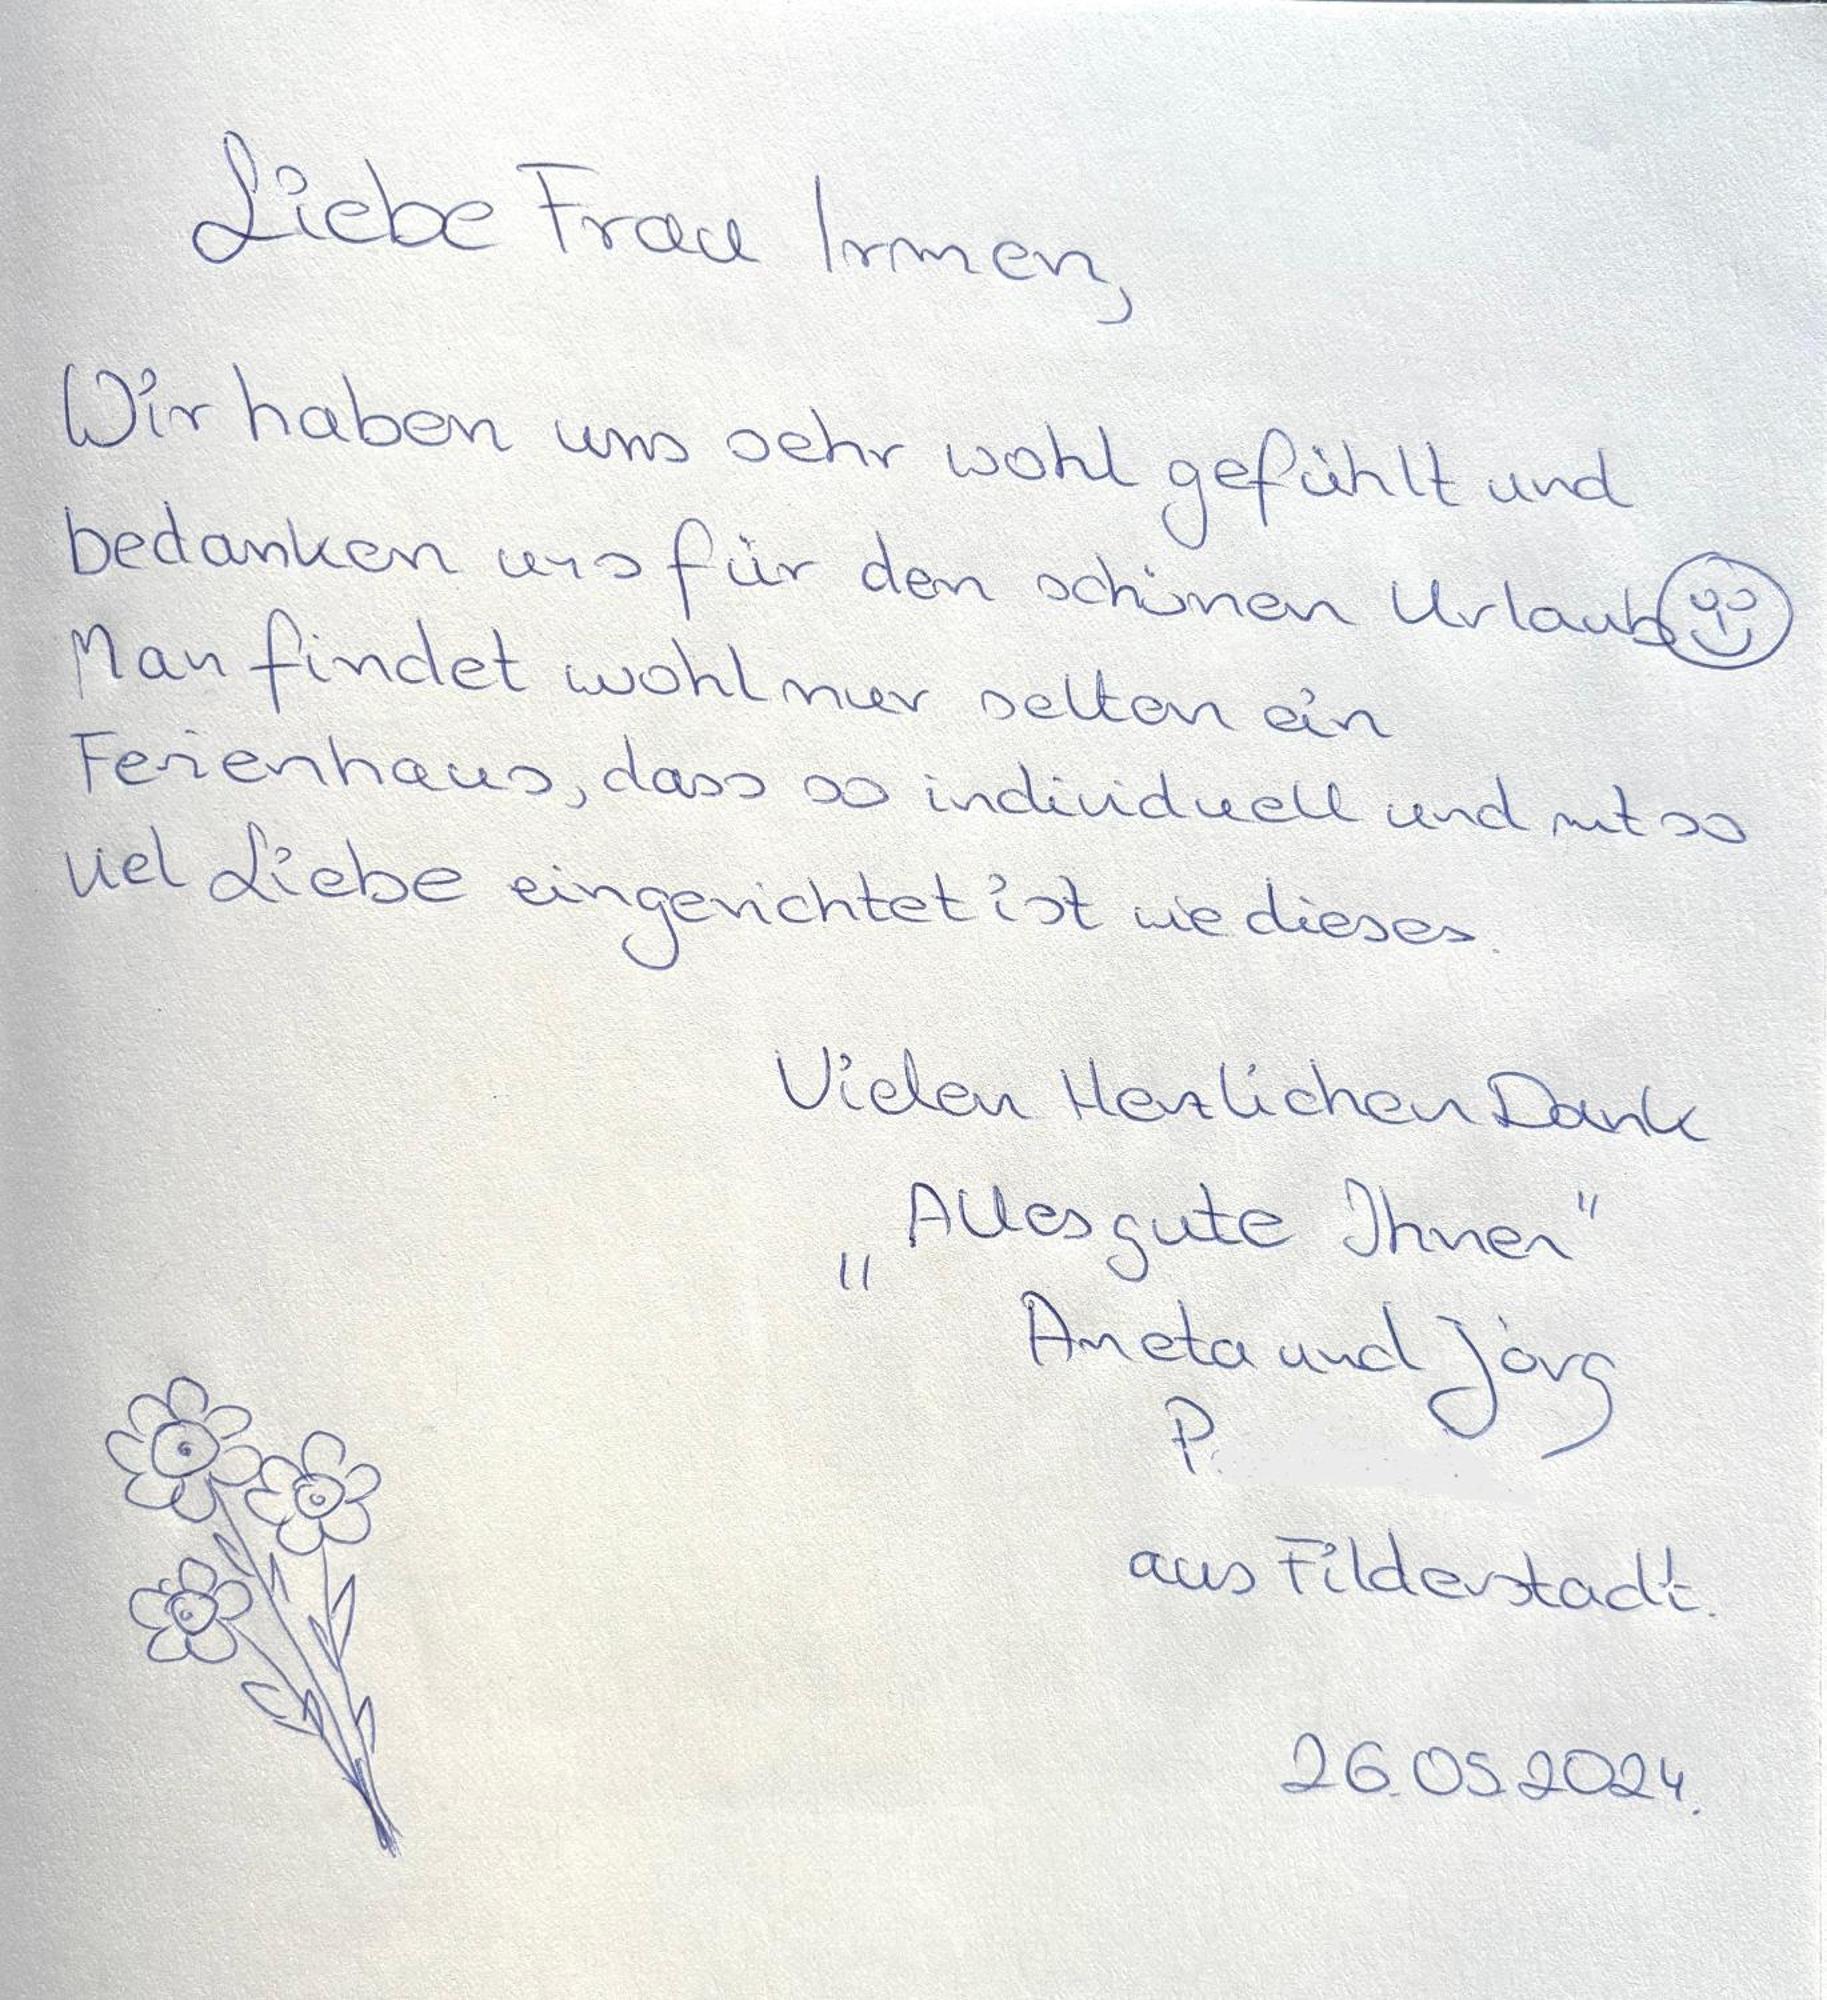 Liebe Frau Irmen,
Wir haben uns sehr wohl gefühlt und
bedanken uns für den schönen Urlaub
Man findet wohl nur selten ein
Ferienhaus, dass so individuell und mit so
viel Liebe eingerichtet ist wie dieses.
Vielen Herzlichen Dank
„Alles gute Ihnen"
Aneta und Jörg
P.
aus Filderstadt.
26.05.2024.